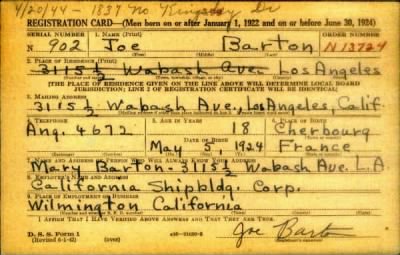 4/20/44 - 1837 No. Kingsley Dr
REGISTRATION CARD—(Men born on or after January 1, 1922 and on or before June 30, 1924)
SERIAL NUMBER 1. NAME (Print) ORDER NUMBER
N 902 Joe Barton N 13724
2. PLACE OF RESIDENCE (Print)
3115½ Wabash Ave. Los Angeles
[THE PLACE OF RESIDENCE GIVEN ON THE LINE ABOVE WILL DETERMINE LOCAL BOARD
JURISDICTION; LINE 2 OF REGISTRATION CERTIFICATE WILL BE IDENTICAL]
3. MAILING ADDRESS
3115½ Wabash Ave, Los Angeles, Calif.
4. TELEPHONE 5. AGE IN YEARS 6. PLACE OF BIRTH
Ang. 4672 18 Cherbourg
DATE OF BIRTH
May 5, 1924 France
7. NAME AND ADDRESS OF PERSON WHO WILL ALWAYS KNOW YOUR ADDRESS
Mary Barton - 3115½ Wabash Ave. L.A.
8. EMPLOYER'S NAME AND ADDRESS
California Shipbldg. Corp.
9. PLACE OF EMPLOYMENT OR BUSINESS
Wilmington California
I AFFIRM THAT I HAVE VERIFIED ABOVE ANSWERS AND THAT THEY ARE TRUE.
D. S. S. Form 1
(Revised 6-1-42) (over)
Joe Barton